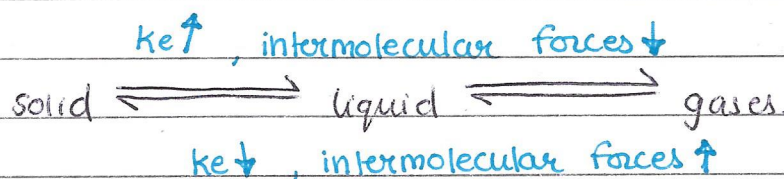 ke↑, intermolecular forces↓
solid ⇌ liquid ⇌ gases.
ke↓, intermolecular forces↑